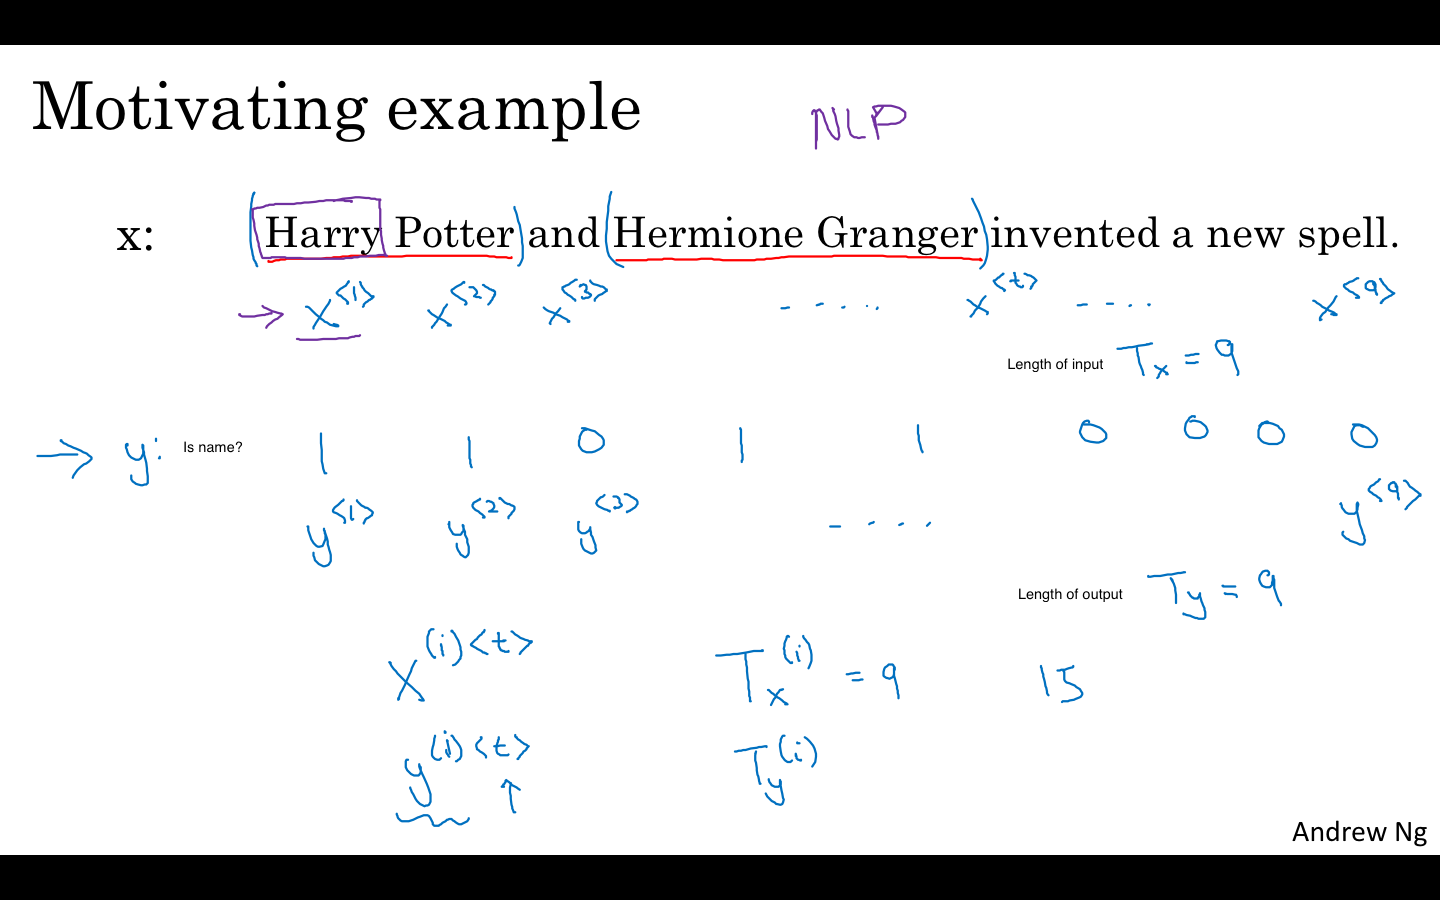 Motivating example
NLP
x: Harry Potter and Hermione Granger invented a new spell.
x<1> x<2> x<3> - - - - - x<t> - - - - x<9>
Length of input Tx = 9
→ y: Is name? 1 1 0 1 1 0 0 0 0
y<1> y<2> y<3> - - - - y<9>
Length of output Ty = 9
X(i)<t> Tx(i) = 9 15
y(i)<t> Ty(i)
Andrew Ng